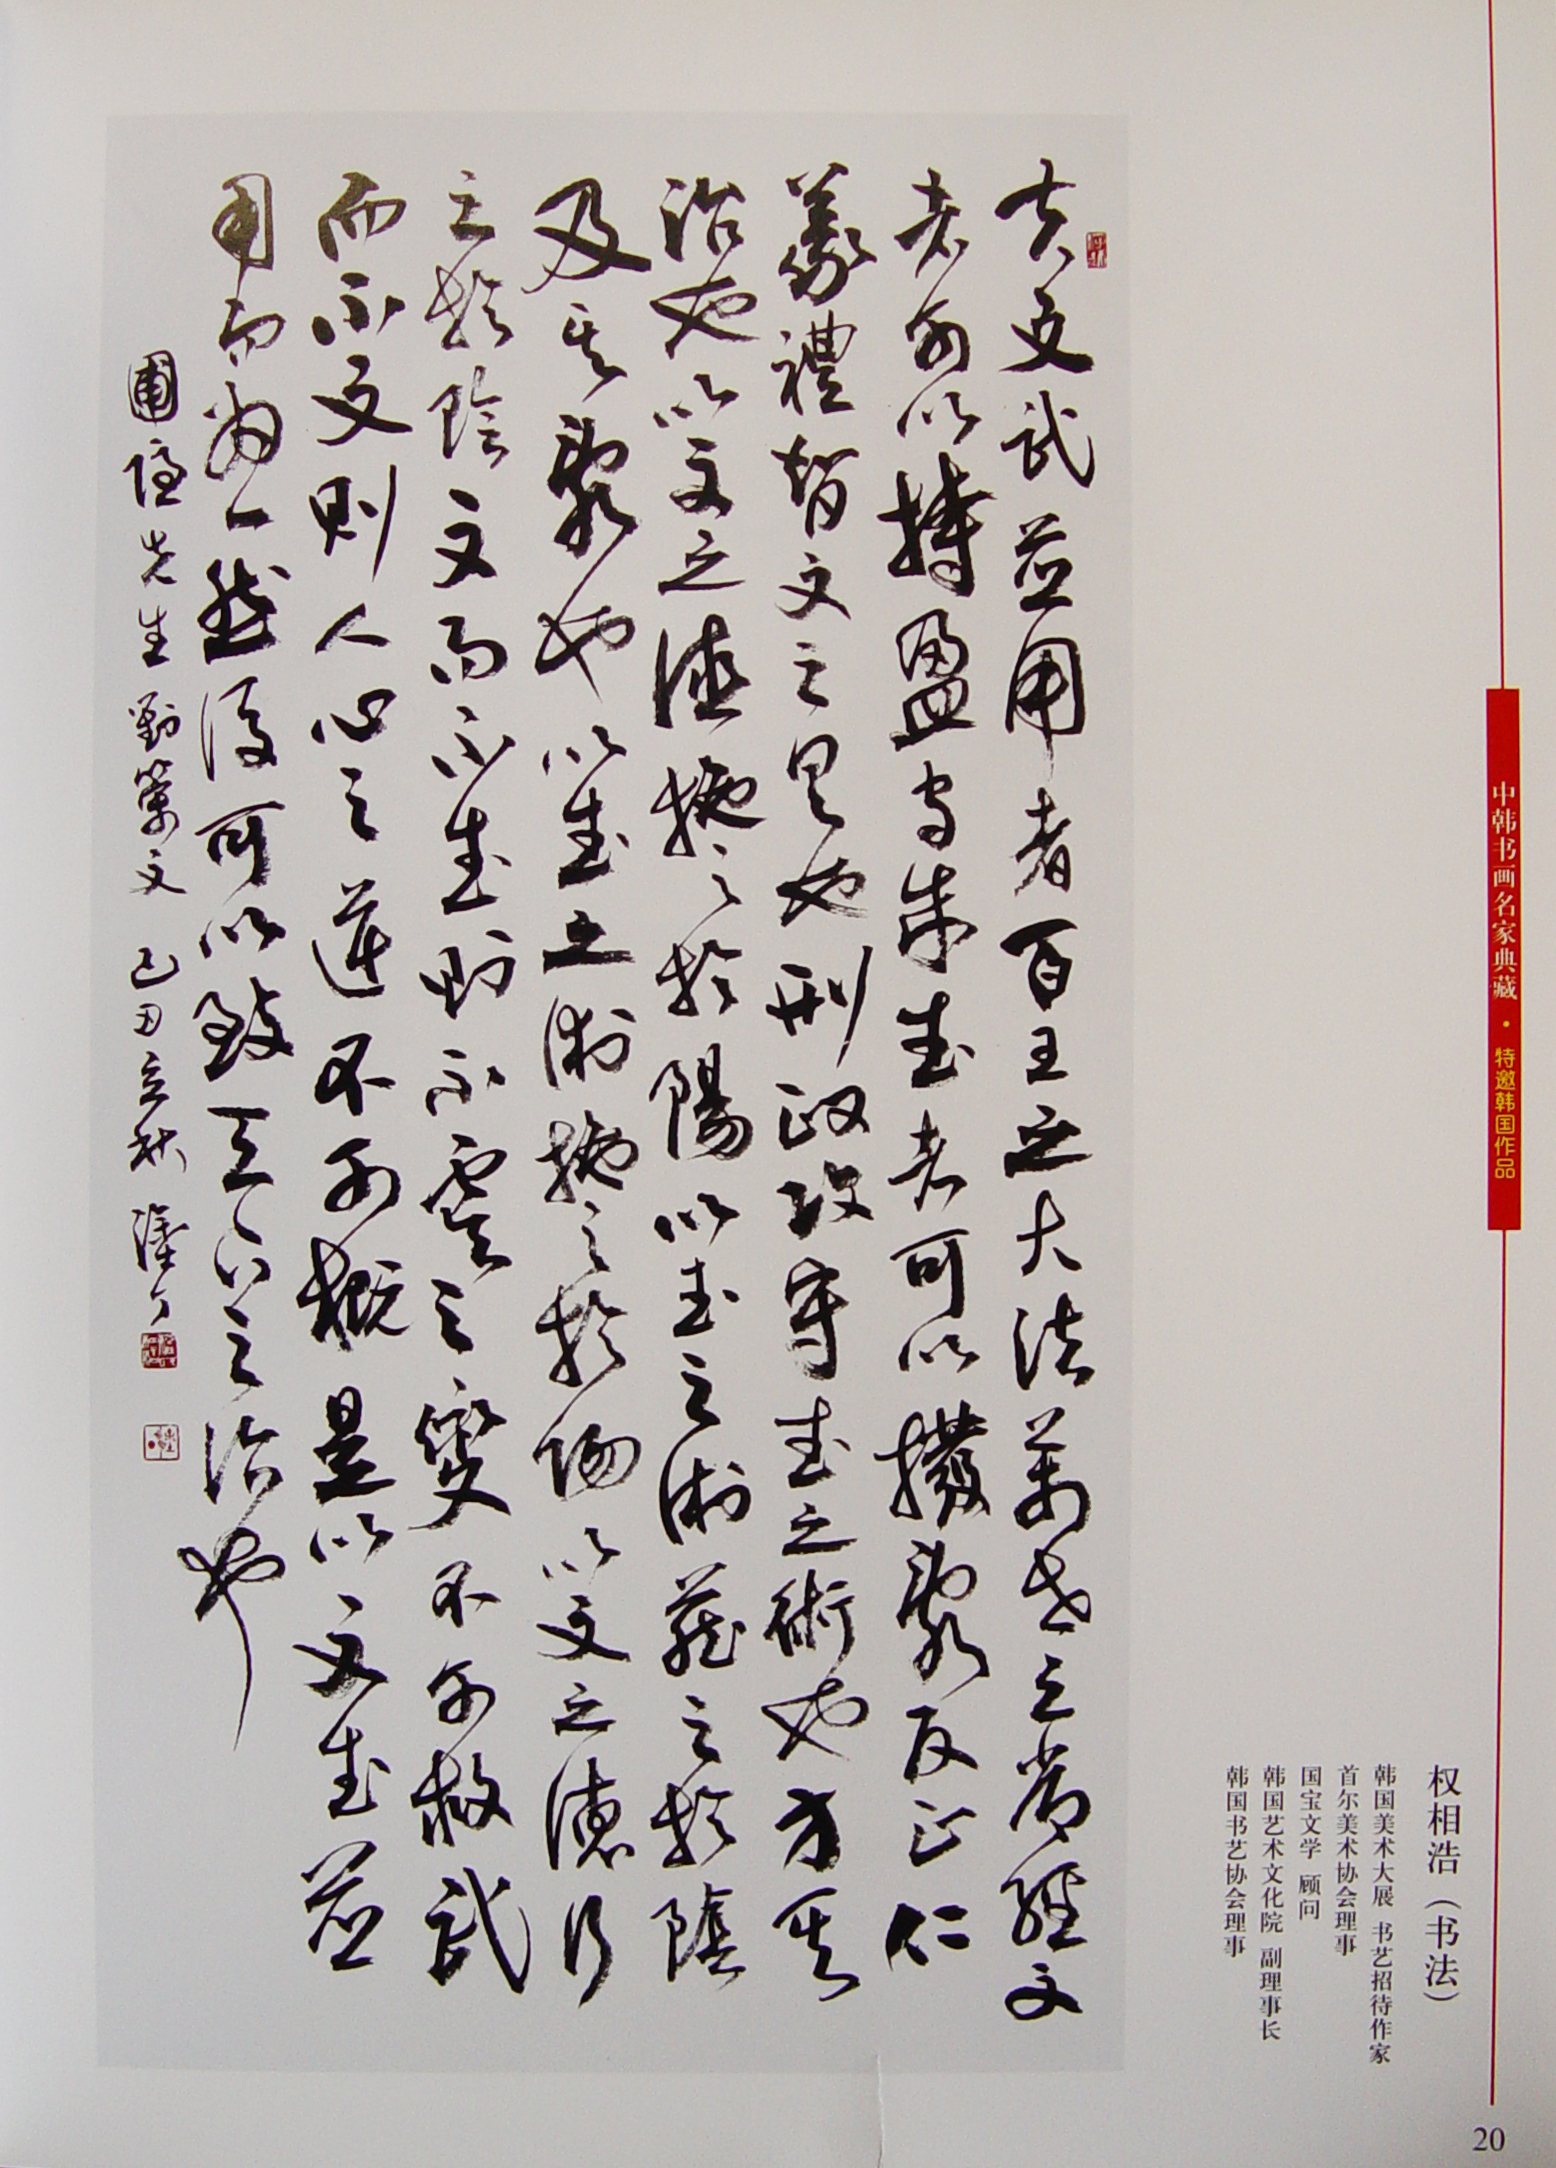 夫文武並用者百王之大法萬世之常經文
者可以持盈守成武者可以撥亂反正仁
義禮智文之具也刑政攻守武之術也方其
治也以文之德施之於陽以武之術藏之於陰
及其亂也以武之術施之於陽以文之德行
之於陰文而不武則不虞之變不可救武
而不文則人心之道不可概是以文武並
用而爲一然後可以致天下之治也
圃隱先生對策文 己丑立秋
中韩书画名家典藏·特邀韩国作品
权相浩（书法）
韩国美术大展 书艺招待作家
首尔美术协会理事
国宝文学 顾问
韩国艺术文化院 副理事长
韩国书艺协会理事
20